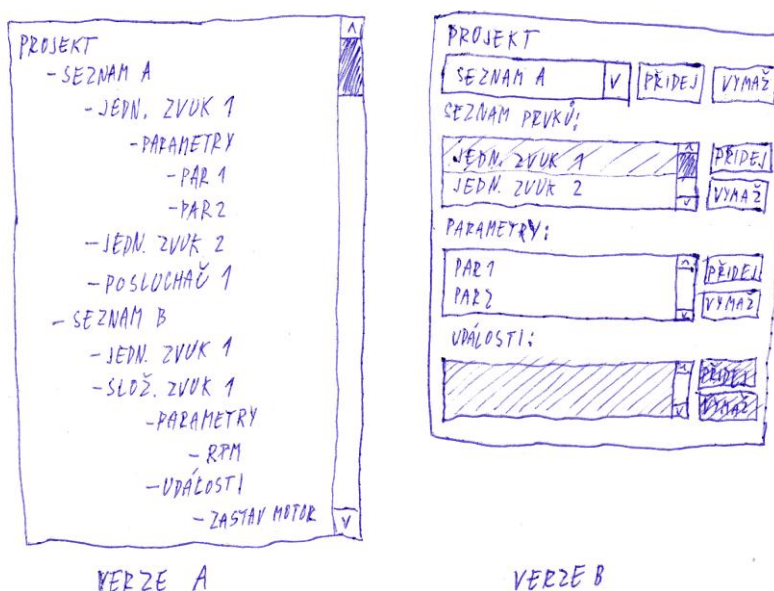 PROJEKT
- SEZNAM A
- JEDN. ZVUK 1
- PARAMETRY
- PAR 1
- PAR2
- JEDN. ZVUK 2
- POSLUCHAČ 1
- SEZNAM B
- JEDN. ZVUK 1
- SLOŽ. ZVUK 1
- PARAMETRY
- RPM
- UDÁLOSTI
- ZASTAV MOTOR
VERZE A
PROJEKT
SEZNAM A V PŘIDEJ VYMAŽ
SEZNAM PRVKŮ:
JEDN. ZVUK 1 PŘIDEJ
JEDN. ZVUK 2 VYMAŽ
PARAMETRY:
PAR1 PŘIDEJ
PAR2 VYMAŽ
UDÁLOSTI:
PŘIDEJ
VYMAŽ
VERZE B